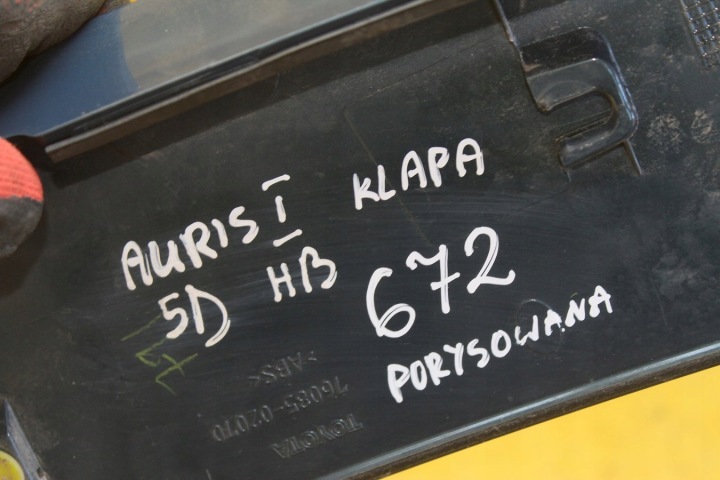 AURIS I KLAPA
5D HB 672
PORYSOWANA
>ABS<
76085-02070
TOYOTA